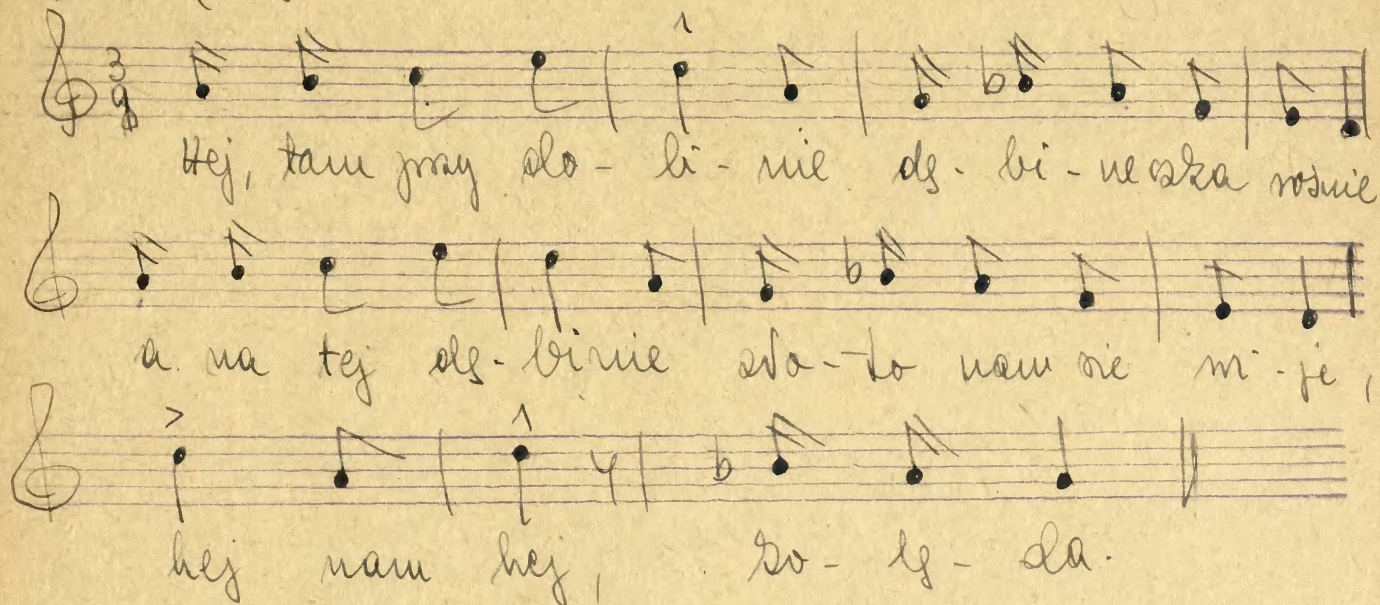 3
8
Hej, tam przy do - li - nie dę - bi - neczka rośnie
a na tej dę - binie zło - to nam sie wi - je,
hej nam hej, ko - lę - da.